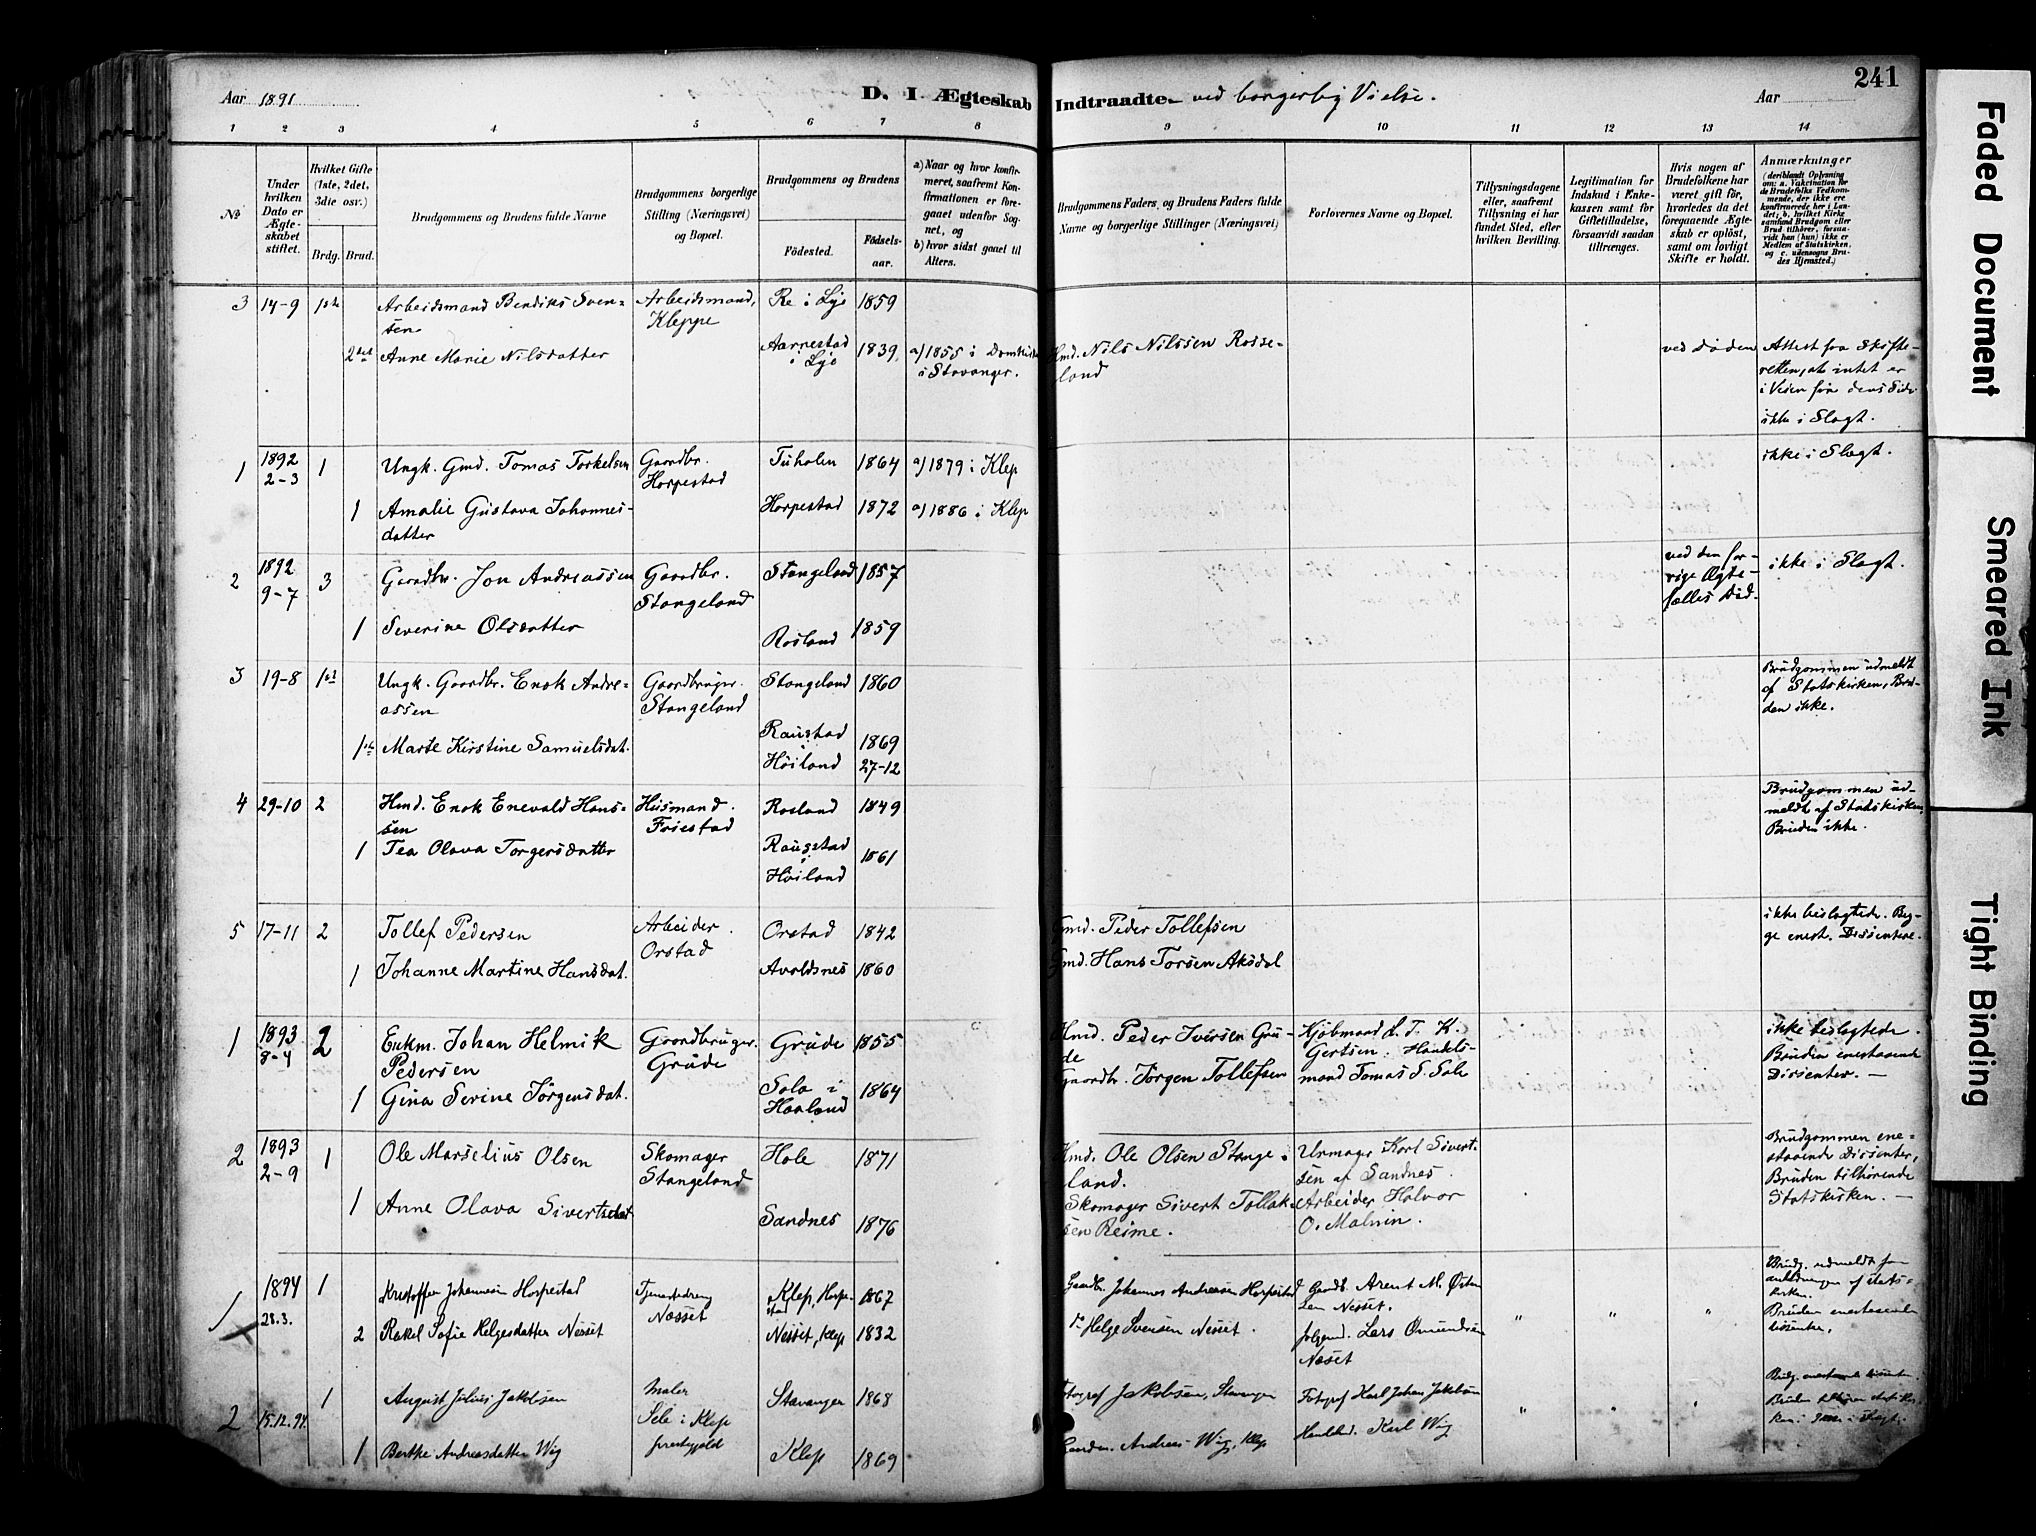 241
Aar 1891
D. I Ægteskab
Indtraadte ved borgerlig Vielse.
Aar
1 2 3 4 5 6 7 8 9 10 11 12 13 14
No
Under hvilken Dato er Ægteskabet stiftet.
Hvilket Gifte (1ste, 2det, 3die osv.)
Brdg. Brud.
Brudgommens og Brudens fulde Navne
Brudgommens borgerlige Stilling (Næringsvei) og Bopæl.
Brudgommens og Brudens
Födested.
Födselsaar.
a) Naar og hvor konfirmeret, saafremt Konfirmationen er foregaaet udenfor Sognet, og
b) hvor sidst gaaet til Alters.
Brudgommens Faders og Brudens Faders fulde Navne og borgerlige Stillinger (Næringsvei)
Forlovernes Navne og Bopæl.
Tillysningsdagene eller, saafremt Tillysning ei har fundet Sted, efter hvilken Bevilling.
Legitimation for Indskud i Enkekassen samt for Giftetilladelse, forsaavidt saadan tiltrænges.
Hvis nogen af Brudefolkene har været gift før, hvorledes da det foregaaende Ægteskab er oplöst, samt om lovligt Skifte er holdt.
Anmærkninger (deriblandt Oplysning om: a. Vakcination for de Brudefolks Vedkommende, der ikke ere konfirmerede her i Landet; b. hvilket Kirkesamfund Brudgom eller Brud tilhører, forsaavidt han (hun) ikke er Medlem af Statskirken, og c. udensogns Brudes Hjemsted.)
3 14-9 1ste Arbeidsmand Bendiks Svensen
Arbeidsmand, Kleppe
Re i Lye 1859
2det Anne Marie Nilsdatter
Aarrestad i Lye 1839
a) 1855 i Domkirken i Stavanger.
Hmd. Nils Nilssen Rosseland
ved Døden
Attest fra Skifteretten, at intet er i Veien fra dens Side
ikke i Slægt.
1 1892 2-3 1 Ungk. Gmd. Tomas Torkelsen
Gaardbr. Horpestad
Tuholen 1864 a) 1879 i Klep
ikke i Slægt.
1 Amalie Gustava Johannesdatter
Horpestad 1872 a) 1886 i Klep
2 1892 9-7 3 Gaardbr. Jon Andreassen
Gaardbr. Stangeland
Stangeland 1857
ved den forrige Ægtefælles Död.
ikke i Slægt.
1 Severine Olsdatter
Rosland 1859
3 19-8 1st Ungk. Gaardbr. Enok Andreassen
Gaardbruger. Stangeland
Stangeland 1860
Brudgommen udmeldt af Statskirken, Bruden ikke.
1ste Marte Kirstine Samuelsdat.
Raustad i Höiland 1869 27-12
4 29-10 2 Hmd. Enok Enevald Hanssen
Husmand. Friestad
Rosland 1849
Brudgommen udmeldt af Statskirken, Bruden ikke.
1 Tea Olava Torgersdatter
Raugstad i Höiland 1861
5 17-11 2 Tollef Pedersen
Arbeider. Orstad
Orstad 1842
Gmd. Peder Tollefsen
ikke beslægtede. Begge enest. Dissentere.
1 Johanne Martine Hansdat.
Avaldsnes 1860
Gmd. Hans Torsen Aksdal
1 1893 8-4 2 Enkm. Johan Helmik Pedersen
Gaardbruger. Grude
Grude 1855
Hmd. Peder Iversen Grude
Kjöbmand L. T. K. Gertsen. Handelsmand Tomas S. Sele
ikke beslegtede. Bruden enestaaende Dissenter. —
1 Gina Serine Jörgensdat.
Sola i Haaland 1864
Gaardbr. Jörgen Tollefsen
2 1893 2-9 1 Ole Marselius Olsen
Skomager Stangeland
Hole 1871
Hmd. Ole Olsen Stangeland.
Urmager Karl Sivertsen af Sandnes.
Arbeider Halvor O. Malmin.
Brudgommen enestaaende Dissenter, Bruden tilhörende Statskirken. —
1 Anne Olava Sivertsdat
Sandnes 1876
Skomager Sivert Tollaksen Reime.
1 1894 28.3. 1 Kristoffer Johannesen Horpestad
Tjenestedreng Næsset
Klep, Horpestad 1867
Gaardb. Johannes Andreasen Horpestad
Gaardb. Arent M.
Nesset.
Brudg. udmeldt
af Statskirken.
Bruden enestaaende dissenter.
2 Rakel Sofie Helgesdatter Nesset
Nesset, Klep 1832
do Helge Svensen Nesset.
Lars Omundsen Næset
" " "
2 15.12.94. 1 August Julius Jakobsen
Maler Sele i Klep
Stavanger 1868
Fotograf Jakobsen, Stavanger
Fotograf Karl Johan Jakobsen
" " "
1 Berthe Andreasdatter Wig
Klep 1869
Gaardm. Andreas Wig, Klep
Karl Wig
Faded Document
Smeared Ink
Tight Binding